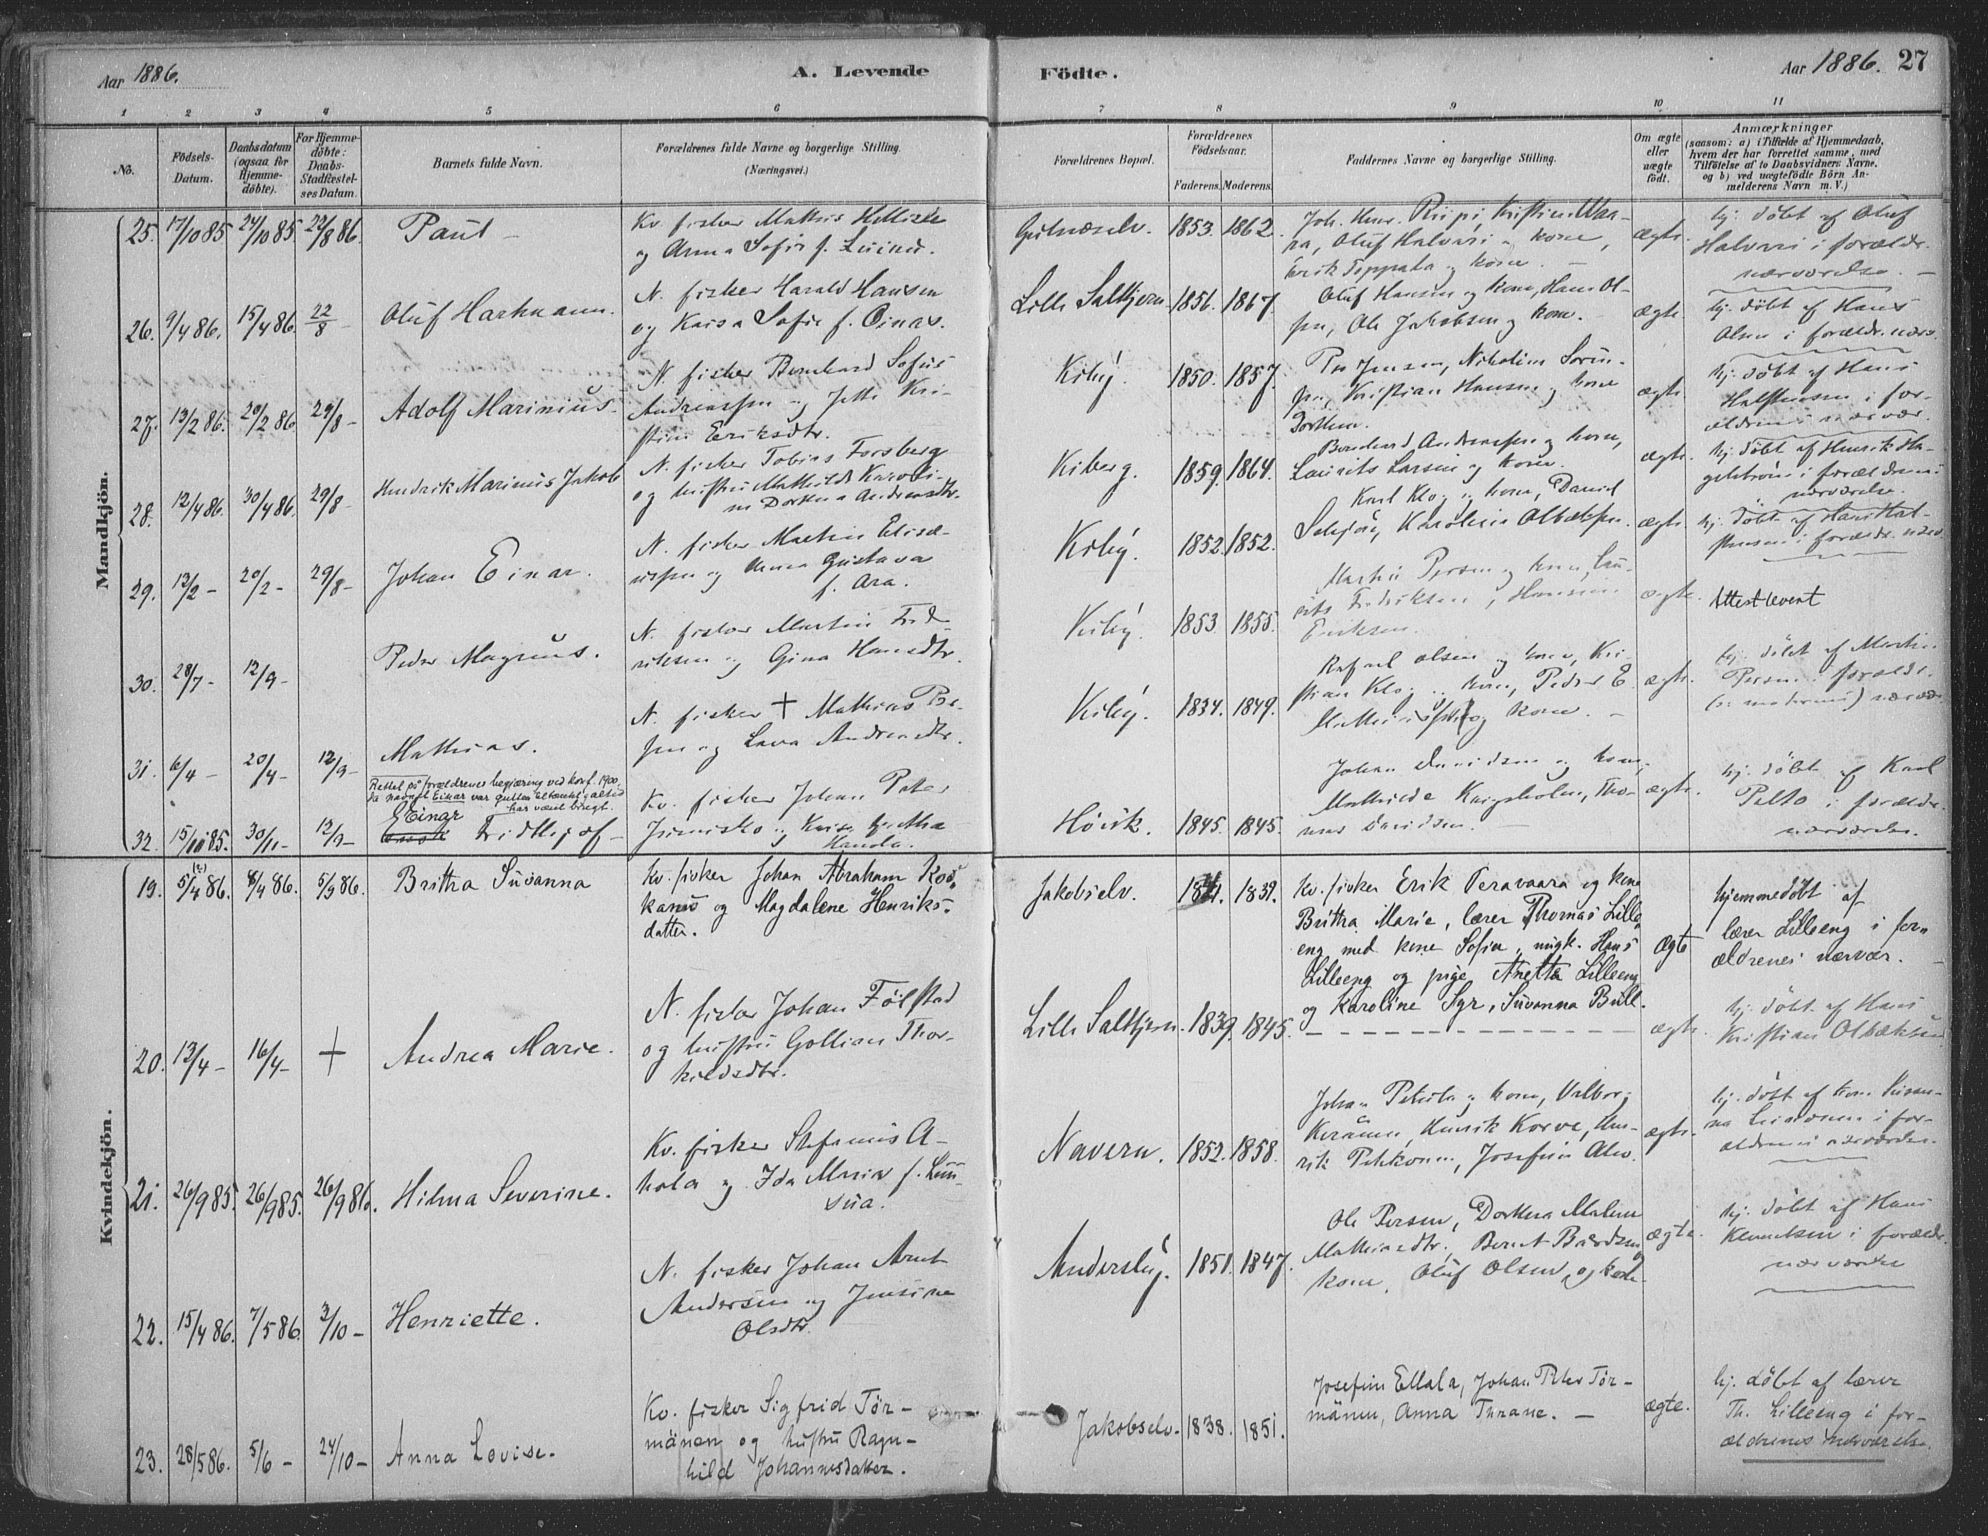 Aar 1886.
A. Levende
Födte.
Aar 1886. 27
1 2 3 4 5 6 7 8 9 10 11
No.
Födsels-
Datum.
Daabsdatum
(ogsaa for
Hjemme-
döbte).
For Hjemme-
döbte:
Daabs-
Stadfæstel-
ses Datum.
Barnets fulde Navn.
Forældrenes fulde Navne og borgerlige Stilling.
(Næringsvei.)
Forældrenes Bopæl.
Forældrenes
Födselsaar.
Faderens. Moderens.
Faddernes Navne og borgerlige Stilling.
Om ægte
eller
uægte
født.
Anmærkninger
(saasom: a) i Tilfælde af Hjemmedaab,
hvem der har forrettet samme, med
Tilföielse af to Daabsvidners Navne.
og b) ved uægtefödte Börn An-
melderens Navn m. V.)
Mandkjön.
25. 17/10 85 24/10 85 22/8 86. Paul –
Kv. fisker Mattis
og Anna Sofie f.
1853. 1862.
Joh. Henr. Riipi, Kristine Waa-
ra, Oluf Halvari og kone,
Erik Toppala og kone. –
ægte.
hj. döbt af Oluf
Halvari i forældr.
nærværelse. –
26. 9/4 86. 15/4 86. 22/8 – Oluf Hartmann.
N. fisker Harald Hansen
og Kaisa Sofie f. Oinas.
Lille Saltjern. 1856. 1867.
Oluf Hansen og kone, Hans Ol-
sen, Ole Jakobsen og kone.
ægte.
hj. döbt af Hans
Olsen i forældr. nærv.
27. 13/2 86. 20/2 86. 29/8 – Adolf Marinius.
N. fisker Bernhard Sofus
Andreassen og Jette Kri-
stine Eriksdtr.
Kibÿ. 1850. 1857.
Per Jensen, Nikoline Soren-
sen, Kristian Hansen og kone
Dorthea.
ægte.
hj. döbt af Hans
Halstensen i for-
ældrenes nærvær.
28. 12/4 86. 30/4 86. 29/8 – Hendrik Marinus Jakob
N. fisker Tobias Forsberg
og hustru Mathilde Karoli-
ne Dorthea Andreasdtr.
Kiberg. 1859. 1864.
Bernhard Andreassen og kone,
Laurits Larsen og kone.
ægte.
hj. döbt af Henrik Ha-
gelström i forældrenes
nærværelse.
29. 13/2 – 20/2 – 29/8 – Johan Einar.
N. fisker Martin Elisæ-
ussen og Anna Gustava
f. Ara.
Kibÿ. 1852. 1852.
Karl Klog og kone, David
Karoline Olbæksen.
ægte.
hj. döbt af Hans Hal-
stensen i forældr. nærv.
30. 28/7 – 12/9 – Peder Magnus.
N. fisker Martin Fred-
riksen og Gina Hansdtr.
Kibÿ. 1853. 1855.
Martin Persen og kone, Lau-
rits Fredriksen, Hansine
Eriksen.
ægte.
Attest levert
31. 6/4 – 20/4 – 12/9 – Mathias.
N. fisker + Mathias Pe-
sen og Lava Andreasdtr.
Kibÿ. 1834. 1849.
Rafael Olsen og kone, Kri-
stian Klog og kone, Peder E.
og kone. –
ægte.
hj. döbt af Martin
Persen i forældr.
nærvær.
Rettet på forældrenes begjæring ved konf. 1900,
da navnet Einar var guttens tiltænkt og altid
har været brugt.
32. 15/11 85. 30/11 – 12/9 – Einar Fridthjof –
Kv. fisker Johan Peter
Hanola.
Höivik. 1845. 1845.
Johan Davidsen og kone,
Mathilde Kurgsholm, Tho-
mas Davidsen. –
ægte.
hj. döbt af Karl
Pelto i forældr.
nærværelse.
Kvindekjön.
19. 5/4(?) 86. 8/4 86. 5/9 86. Brittha Susanna
Kv. fisker Johan Abraham Kos-
kamo og Magdalene Henriks-
datter.
Jakobselv. 1839.
Kv. fisker Erik Peravaara og kone
Brittha Marie, lærer Thomas Lille-
eng med kone Sofie, ungk. Hans
Lilleeng og pige Anetta Lilleeng
og Karoline Syr, Susanna Bull.
ægte
hjemmedöbt af
lærer Lilleeng i for-
ældrenes nærvær. –
20. 13/4 – 16/4 – + Andrea Marie.
N. fisker Johan Fölstad
og hustru Gollian Thor-
kildsdtr.
Lille Saltjern. 1839. 1845. – – –
ægte.
hj. döbt af Hans
Kristian Olbæksen
21. 26/9 85. 26/9 85. 26/9 86. Hilma Severine.
Kv. fisker Stefanus A-
hola og Ida Maria f. Luu-
sua.
Navern. 1852. 1858.
Johan Pekkala og kone, Valbor-
Keränen, Henrik Korva, Hen-
rik Pekkonen, Josefine Alev.
ægte.
hj. döbt af kone Susan-
na i for-
ældrenes nærværelse.
22. 15/4 86. 7/5 86. 3/10 – Henriette.
N. fisker Johan Arnt
Andersen og Jensine
Olsdtr.
Andersbÿ. 1851. 1847.
Ole Persen, Dorthea Malene
Mathisdtr. Bernt Bærdsen og
kone, Oluf Olsen og kone.
ægte.
hj. döbt af Hans
Klemetsen i forældr.
nærværelse
23. 28/5 86. 5/6 – 24/10 – Anna Lovise.
Kv. fisker Sigfrid Tör-
mänen og hustru Ragn-
hild Johannesdatter.
Jakobselv. 1838. 1851.
Josefine Ellala, Johan Peter Tör-
mänen, Anna Thrane. –
ægte.
hj. döbt af lærer
Th. Lilleeng i for-
ældrenes nærværelse.